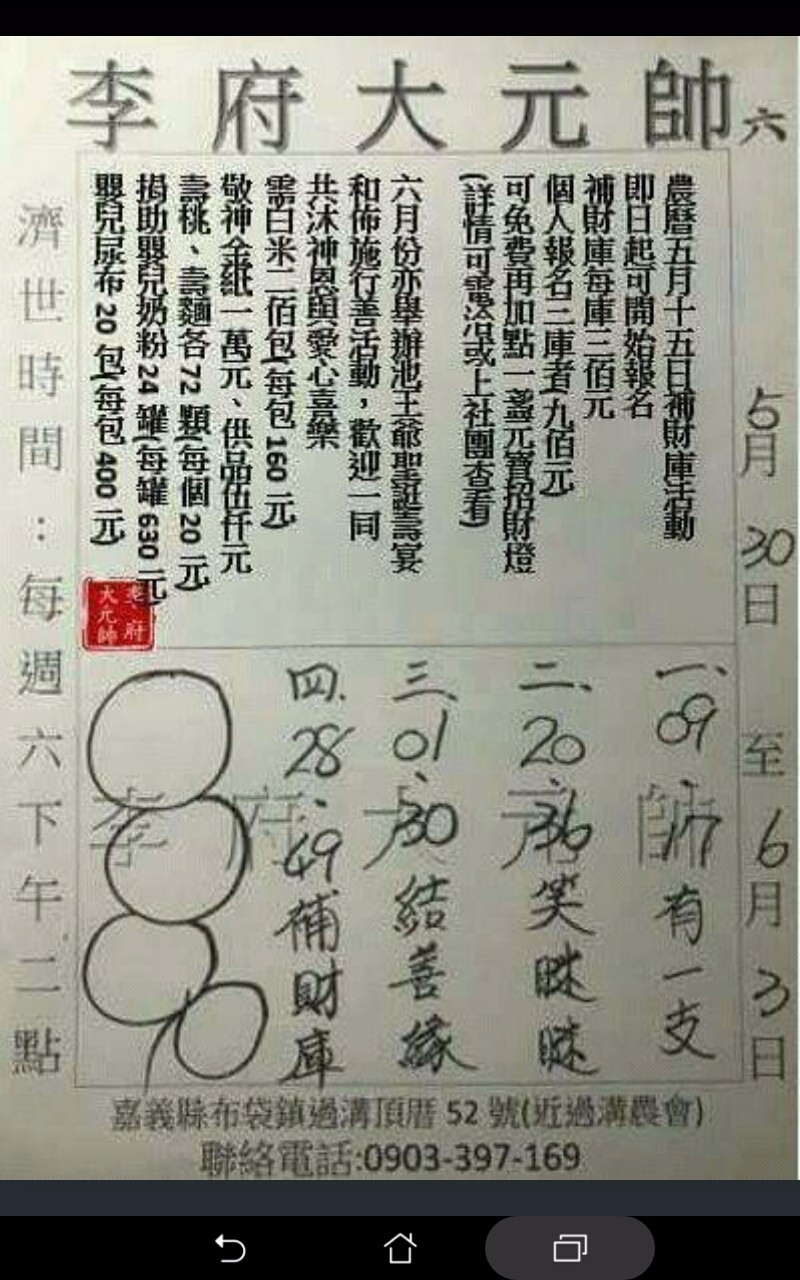 李府大元帥六
農曆五月十五日補財庫活動
即日起可開始報名
補財庫每庫三佰元
個人報名三庫者(九佰元)
可免費再加點一盞元寶招財燈
(詳情可電洽或上社團查看)
六月份亦舉辦池王爺聖誕壽宴
和佈施行善活動，歡迎一同
共沐神恩與愛心喜樂
需白米二佰包(每包 160 元)
敬神金紙一萬元、供品伍仟元
壽桃、壽麵各 72 顆(每個 20 元)
捐助嬰兒奶粉 24 罐(每罐 630 元)
嬰兒尿布 20 包(每包 400 元)
李府
大元帥
5月30日至6月3日
一、09、17有一支
二、20、36笑瞇瞇
三、01、30結善緣
四、28、49補財庫
李府大元帥
濟世時間：每週六下午二點
嘉義縣布袋鎮過溝頂厝 52 號(近過溝農會)
聯絡電話:0903-397-169